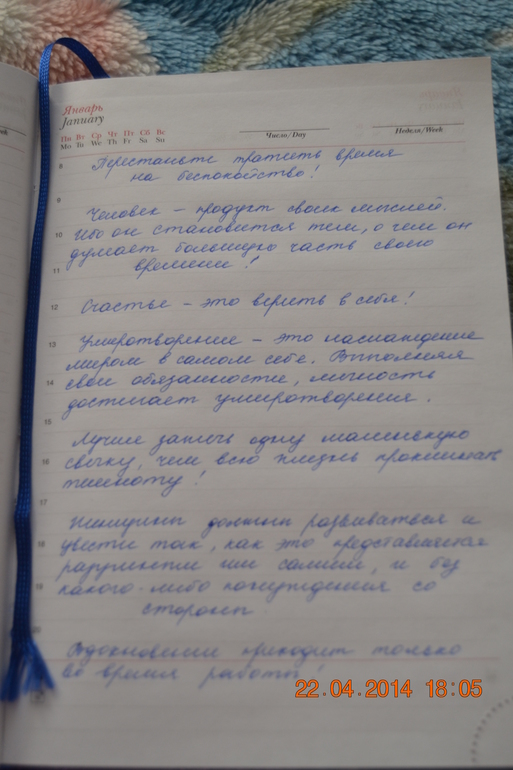 Январь
January
Пн Вт Ср Чт Пт Сб Вс
Mo Tu We Th Fr Sa Su
Число/Day
Неделя/Week
8
Перестаньте тратить время
на беспокойство!
9
Человек – продукт своих мыслей.
10
Ибо он становится тем, о чем он
думает большую часть своего
11
времени!
12
Счастье – это верить в себя!
13
Умиротворение – это наслаждение
миром в самом себе. Выполняя
14
свои обязанности, личность
достигает умиротворения.
15
Лучше зажечь одну маленькую
16
свечку, чем всю жизнь проклинать
темноту!
17
Женщины должны развиваться и
18
цвести так, как это представляется
разумным им самим, и без
19
какого-либо понуждения со
стороны.
20
Вдохновение приходит только
во время работы!
22.04.2014 18:05